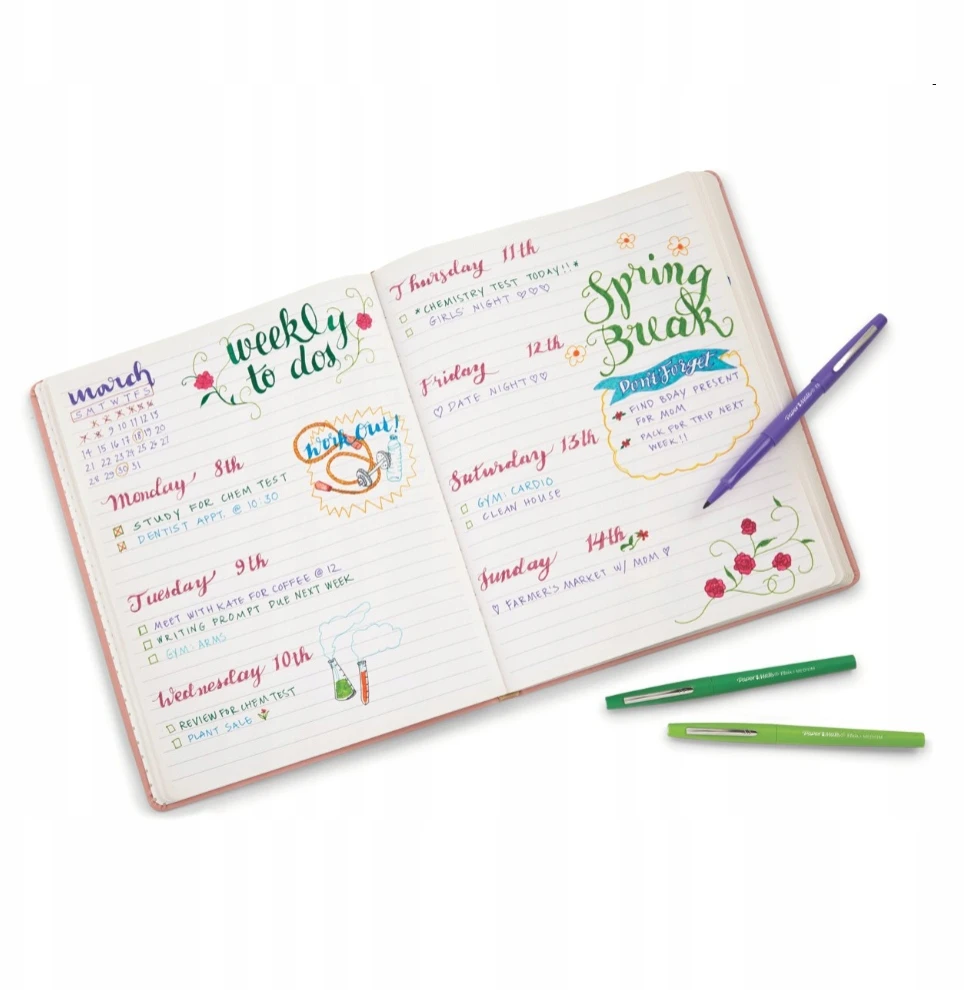 march
S M T W T F S
9 10 11 12 13
14 15 16 17 18 19 20
21 22 23 24 25 26 27
28 29 30 31
weekly
to dos
Monday 8th
STUDY FOR CHEM TEST
DENTIST APPT. @ 10:30
Work Out!
Tuesday 9th
MEET WITH KATE FOR COFFEE @ 12
WRITING PROMPT DUE NEXT WEEK
GYM: ARMS
Wednesday 10th
REVIEW FOR CHEM TEST
PLANT SALE
Thursday 11th
*CHEMISTRY TEST TODAY!!*
GIRLS' NIGHT ♡♡♡
Friday 12th
♡ DATE NIGHT ♡♡
Saturday 13th
GYM: CARDIO
CLEAN HOUSE
Sunday 14th
♡ FARMER'S MARKET W/ MOM ♡
Spring
Break
Don't Forget
FIND BDAY PRESENT
FOR MOM
PACK FOR TRIP NEXT
WEEK!!
Paper Mate
Paper Mate
Paper Mate